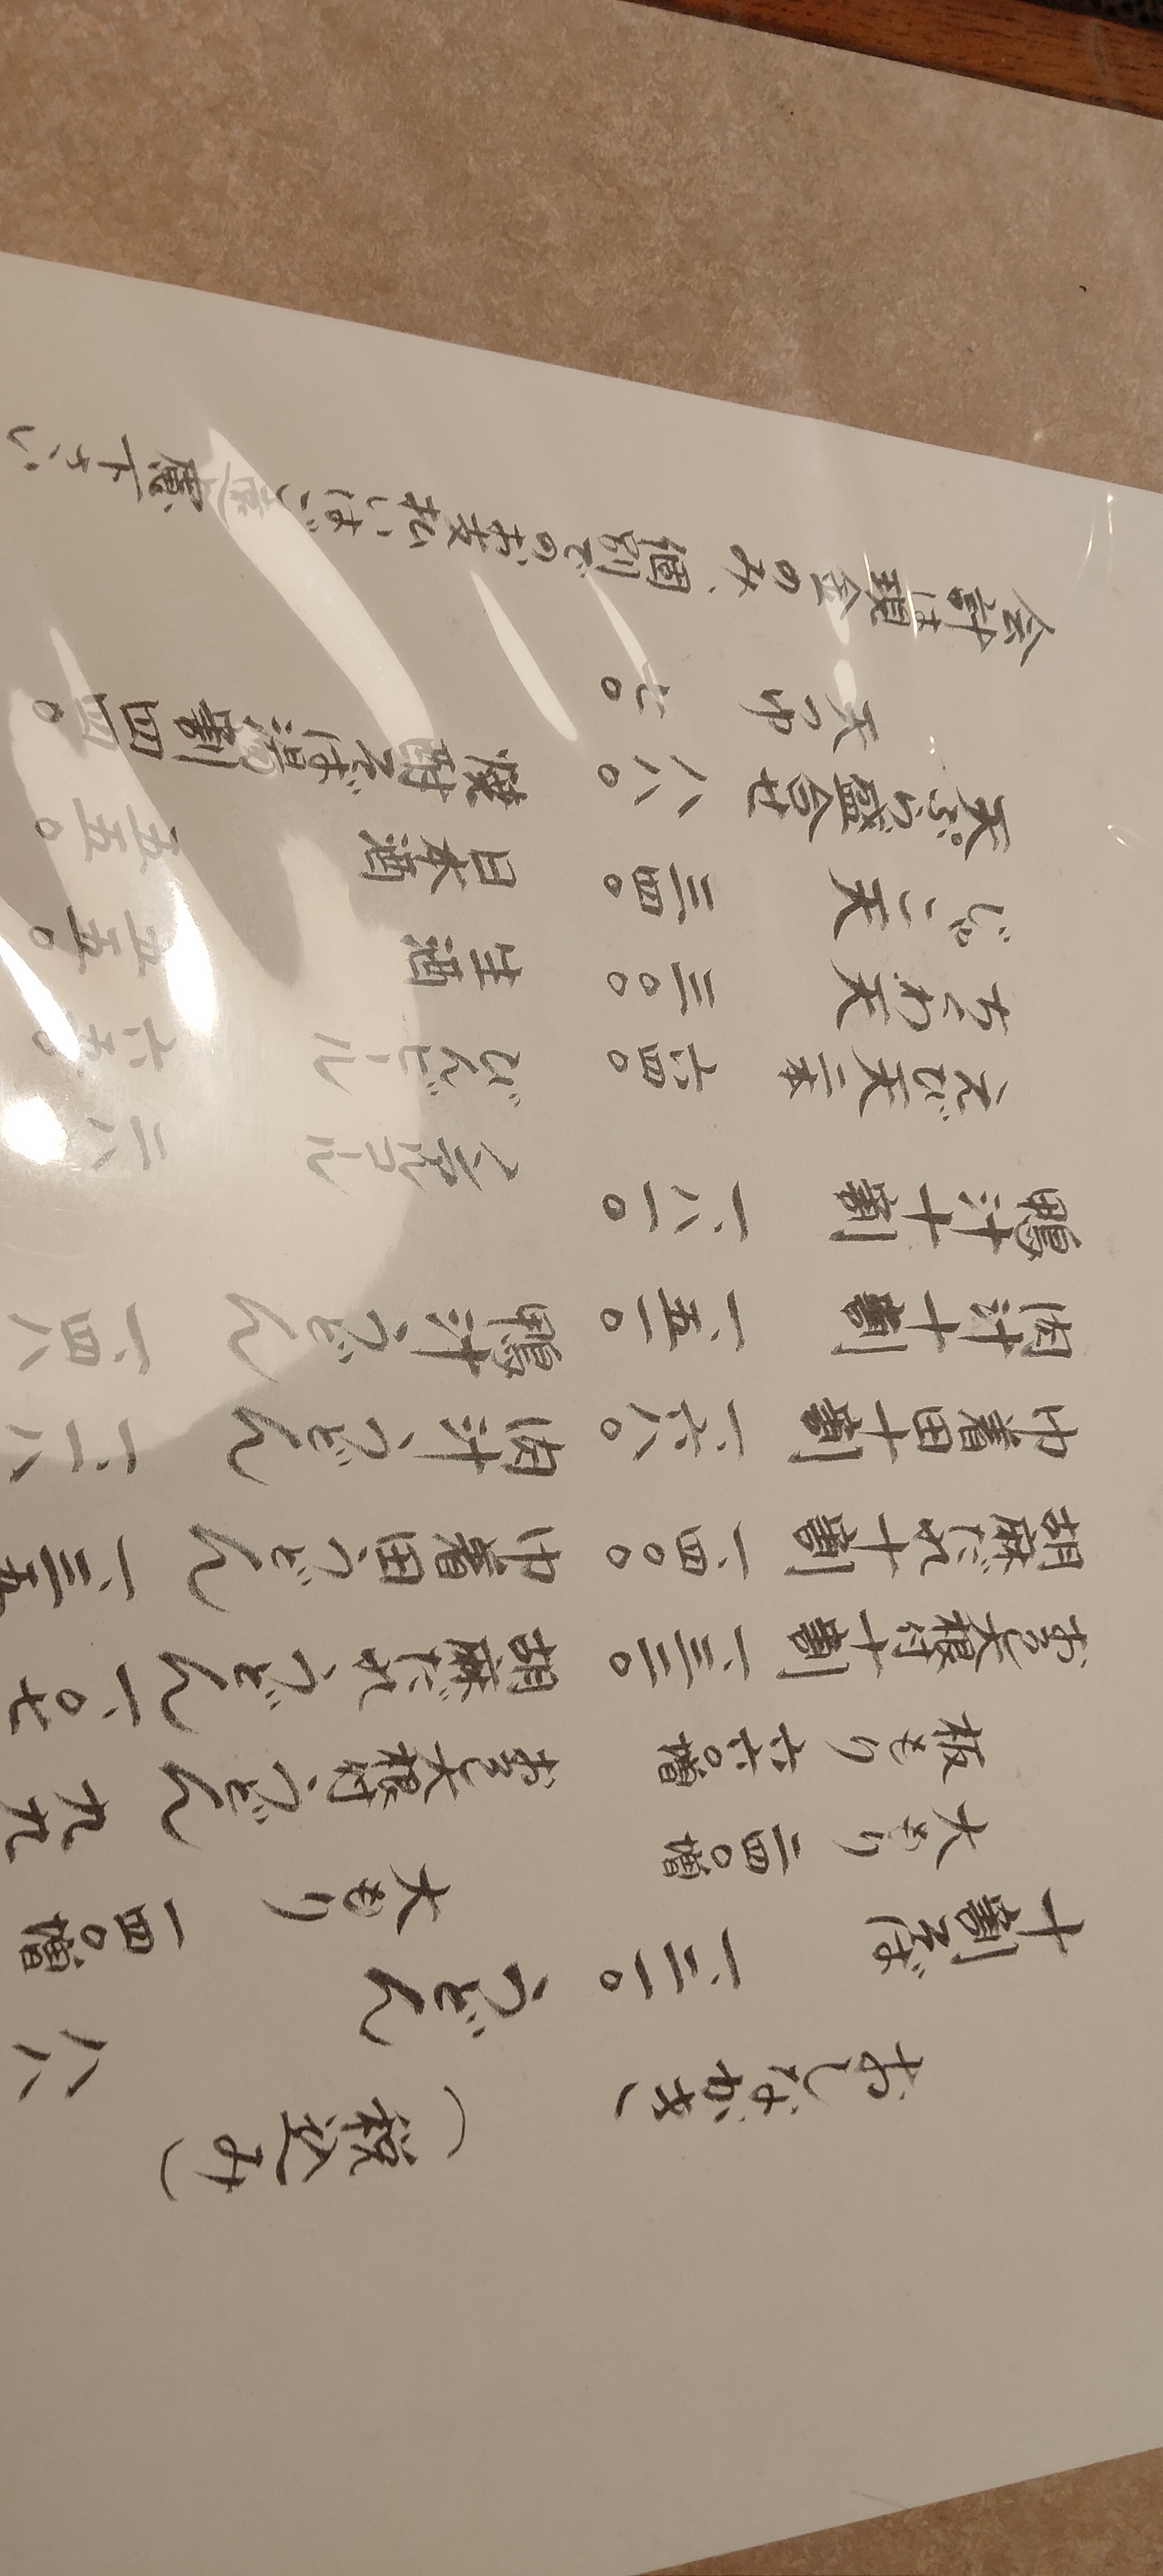 おしながき
(税込み)
十割そば 一、三一〇
大もり 二四〇増
板もり 六六〇増
おろし大根付十割 一、三三〇
胡麻だれ十割 一、四〇〇
巾着田十割 一、六八〇
肉汁十割 一、五一〇
鴨汁十割 一、八一〇
えび天二本 六四〇
ちくわ天 三〇〇
じゃこ天 三四〇
天ぷら盛合せ 八八〇
天つゆ 七〇
うどん 八八
大もり 一四〇増
おろし大根付うどん 九九
胡麻だれうどん 一、〇七
巾着田うどん 一、三五
肉汁うどん 一、一八
鴨汁うどん 一、四八
ノンアルコール 三八
びんビール 六五〇
生酒 五五〇
日本酒 五五〇
焼酎そば湯割 四四〇
会計は現金のみ、個別でのお支払いはご遠慮下さい